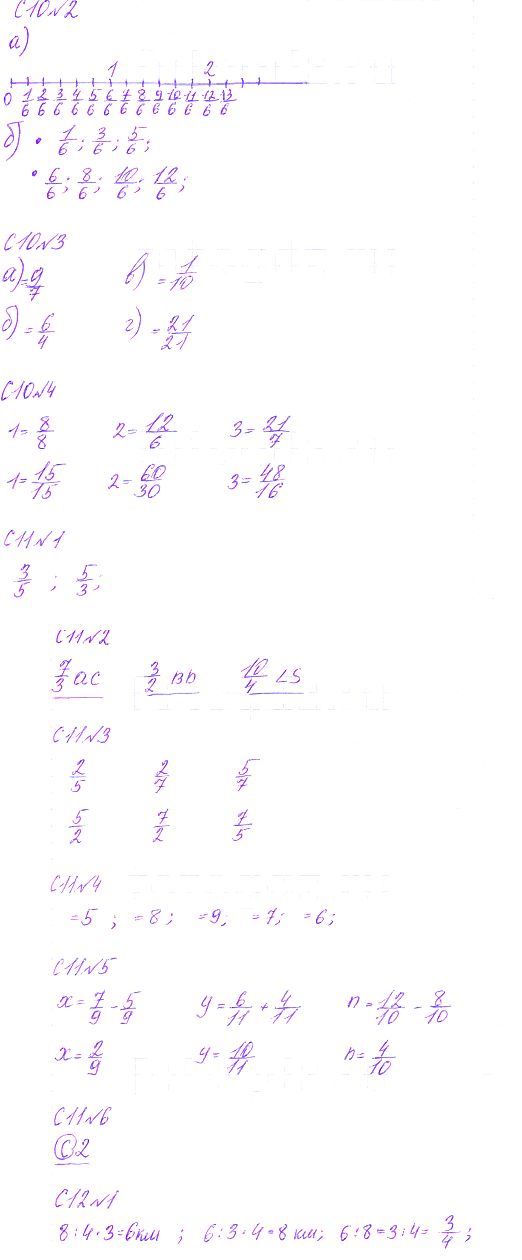 С10№2
а)
1 2
0 1/6 2/6 3/6 4/6 5/6 6/6 7/6 8/6 9/6 10/6 11/6 12/6 13/6
б) • 1/6; 3/6; 5/6;
• 6/6; 8/6; 10/6; 12/6;
С10№3
а) = 9/7 в) = 1/10
б) = 6/4 г) = 21/21
С10№4
1 = 8/8 2 = 12/6 3 = 21/7
1 = 15/15 2 = 60/30 3 = 48/16
С11№1
3/5 ; 5/3;
С11№2
7/3 ac 3/2 BD 10/4 LS
С11№3
2/5 2/7 5/7
5/2 7/2 7/5
С11№4
=5 ; =8; =9; =7; =6;
С11№5
x = 7/9 - 5/9 y = 6/11 + 4/11 n = 12/10 - 8/10
x = 2/9 y = 10/11 n = 4/10
С11№6
С 2
С12№1
8:4·3=6км ; 6:3·4=8км; 6:8=3:4= 3/4 ;